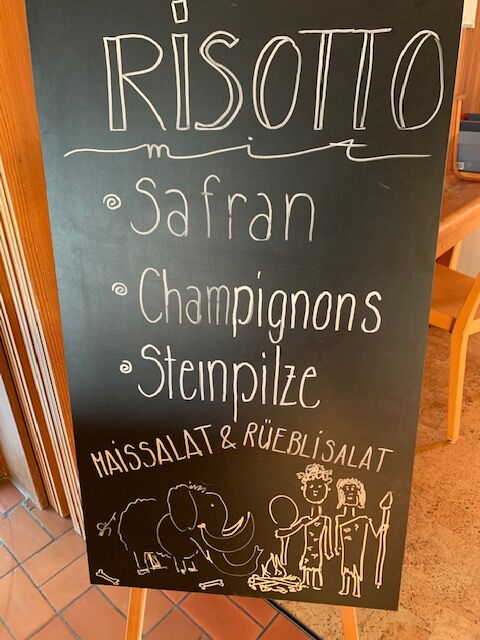 RISOTTO
mit
Safran
Champignons
Steinpilze
MAISSALAT & RÜEBLISALAT